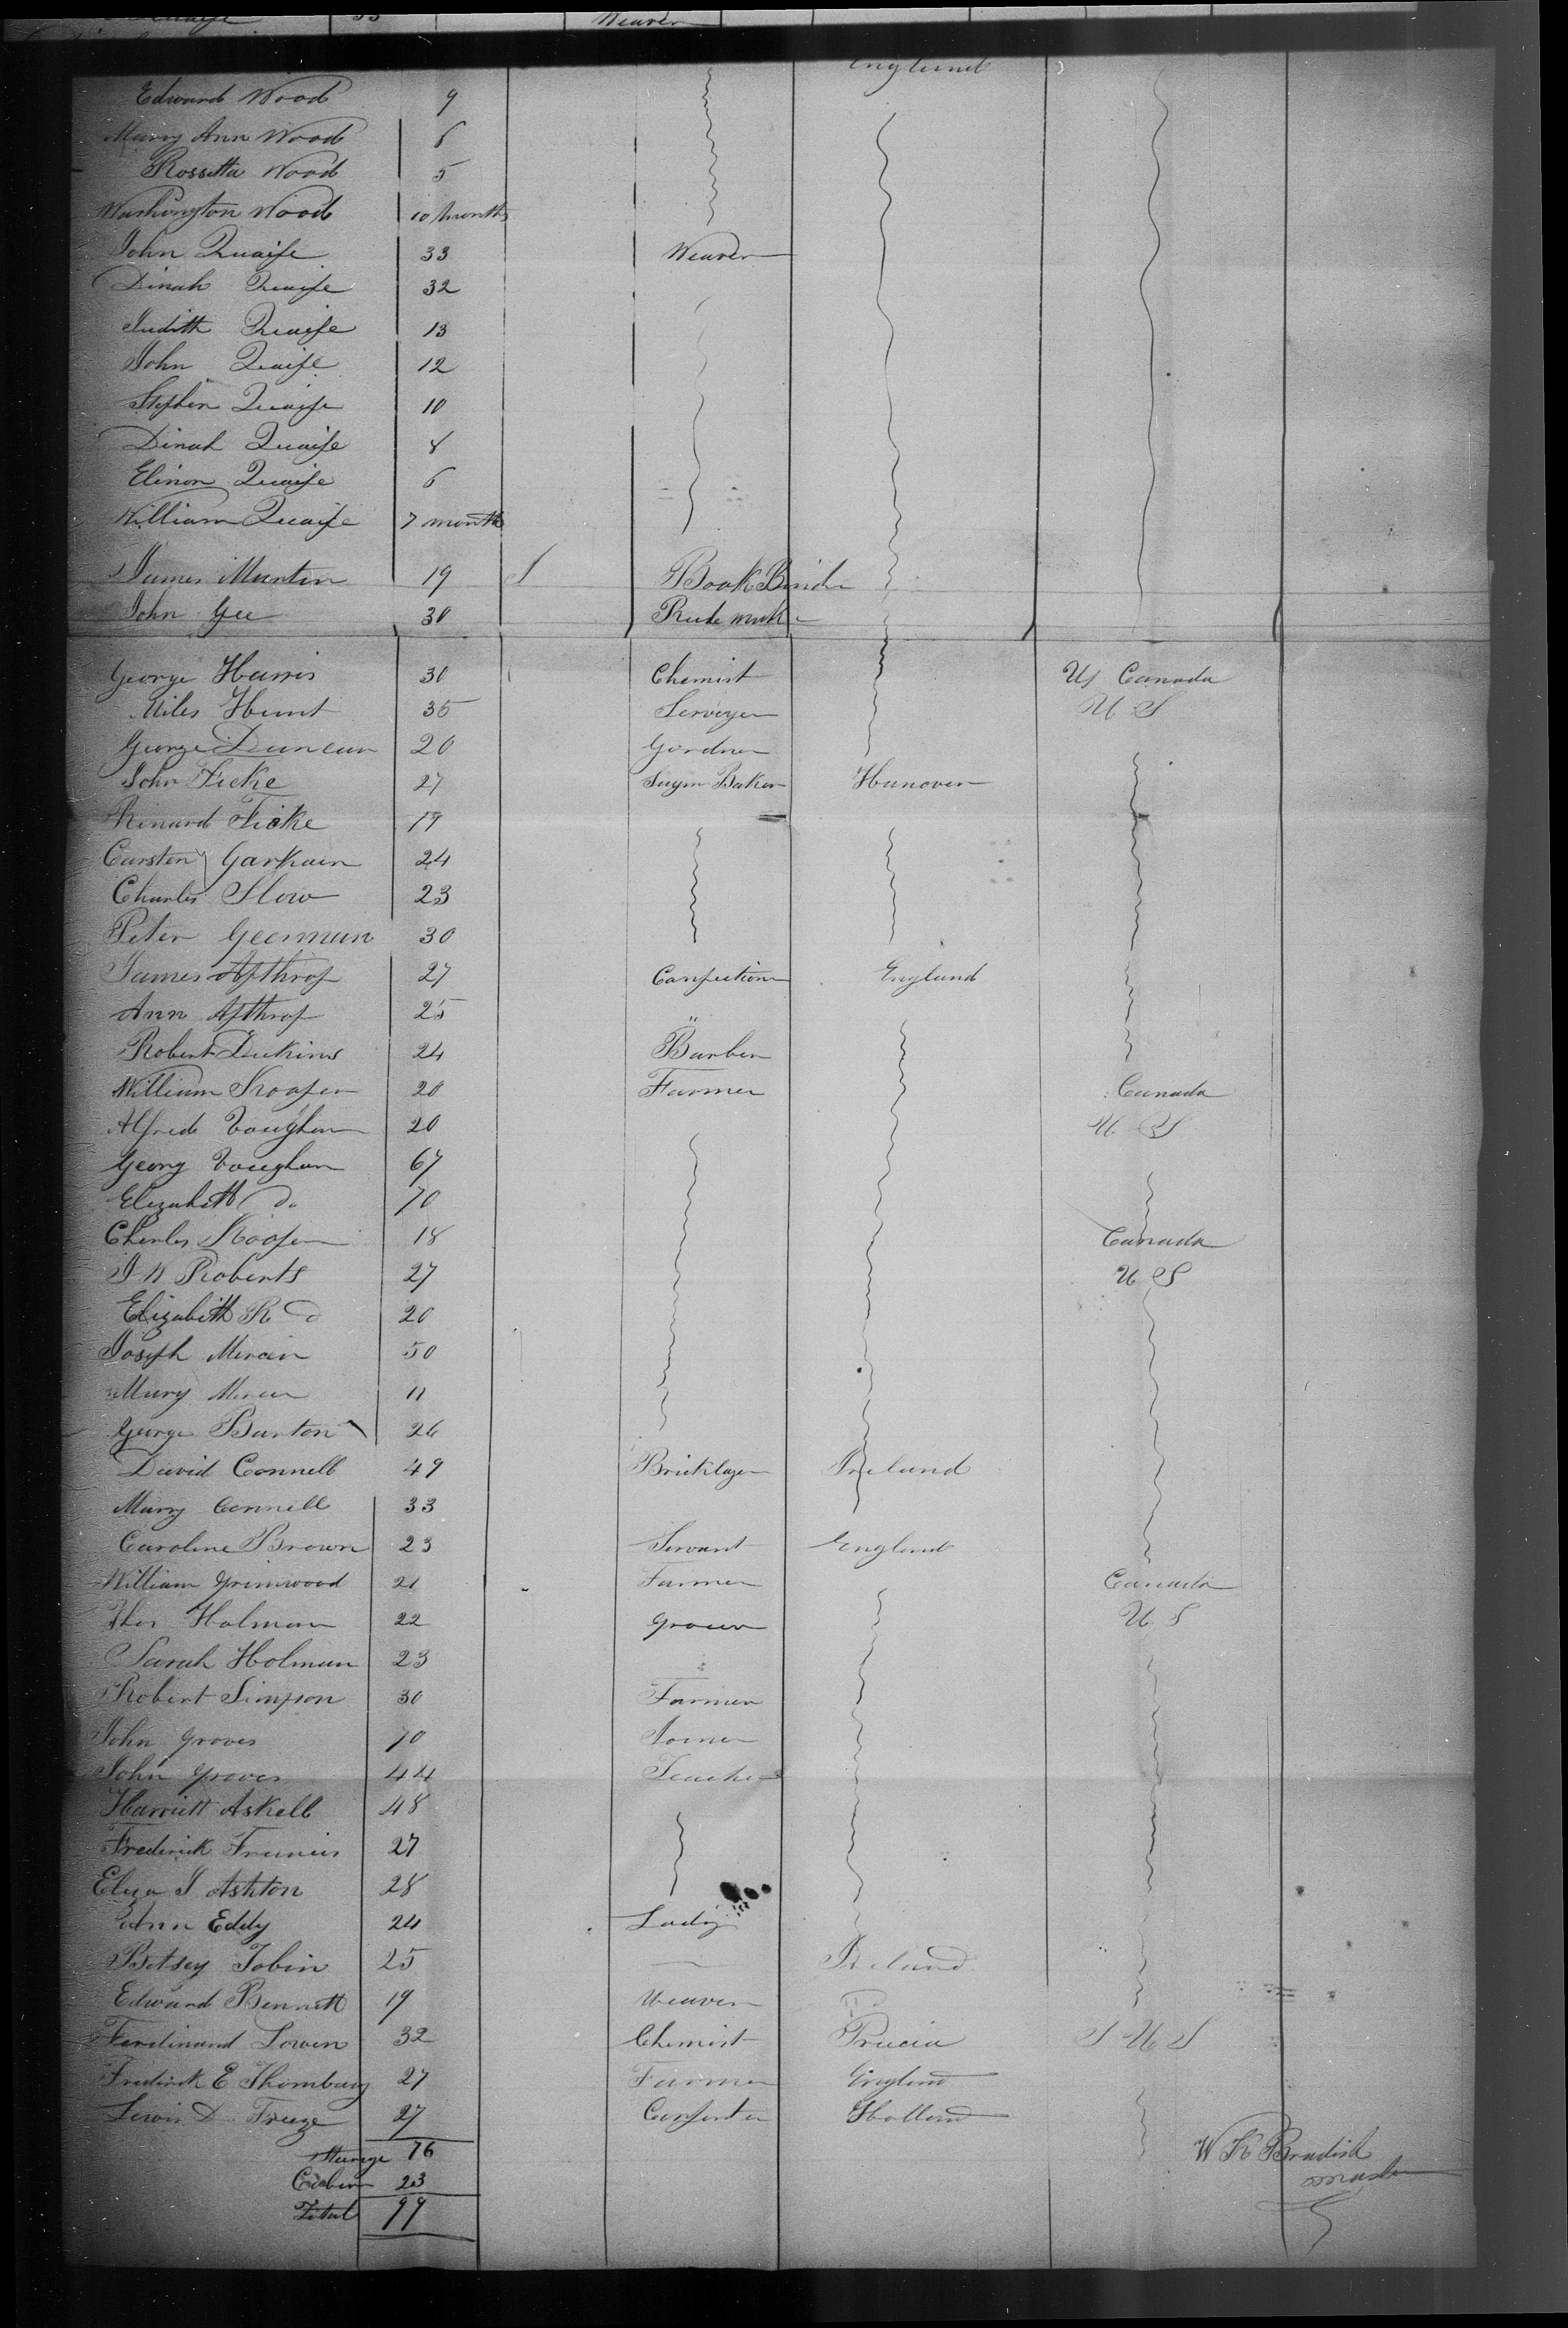 Weaver
England
Edward Wood 9
Marry Ann Wood 6
Rossetta Wood 5
Washington Wood 10 months
John Quaife 33 Weaver
Dinah Quaife 32
Judith Quaife 13
John Quaife 12
Stephen Quaife 10
Dinah Quaife 8
Elinor Quaife 6
William Quaife 7 month
James Martin 19 Book Bind
John Gee 30
George Harris 30 Chemist US Canada
Miles Hunt 35 Serveyer U S
George Duncan 20 Gardner
John Ficke 27 Sugar Baker Hanover
Rinard Ficke 19
Carsten 24
Charles Slow 23
Peter Geerman 30
James Apthrop 27 Confection England
Ann Apthrop 25 "
Robert Dickins 24 Barber
William Hooper 20 Farmer Canada
Alfred Voughan 20 U S
Georg Voughan 67
Elizabeth Do 70
Charles Hooper 18 Canada
J W Roberts 27 U S
Elizabeth R Do 20
Joseph Mercer 50
Mary Mercer 11
George Burton 26
David Connell 49 Bricklayer Ireland
Marry Connell 33
Caroline Brown 23 Servant England
William Grinwood 21 Farmer Canada
Thos Holman 22 Grocer U S
Sarah Holman 23
Robert Simpson 30 Farmer
John Groves 70
John Groves 44 Teacher
Harriett Askell 48
Frederick Francis 27
Eliza J Ashton 28
Ann Eddy 24 Lady
Betsey Tobin 25 Ireland
Edward Bennett 19 Weaver
Ferdinand Lowen 32 Chemist Prucia U S
Fredirick E Thornburg 27 Farmer England
Lewis D Freeze 27 Carpenter Holland
Sterage 76
Cabin 23
Total 99
W K Bradish
master